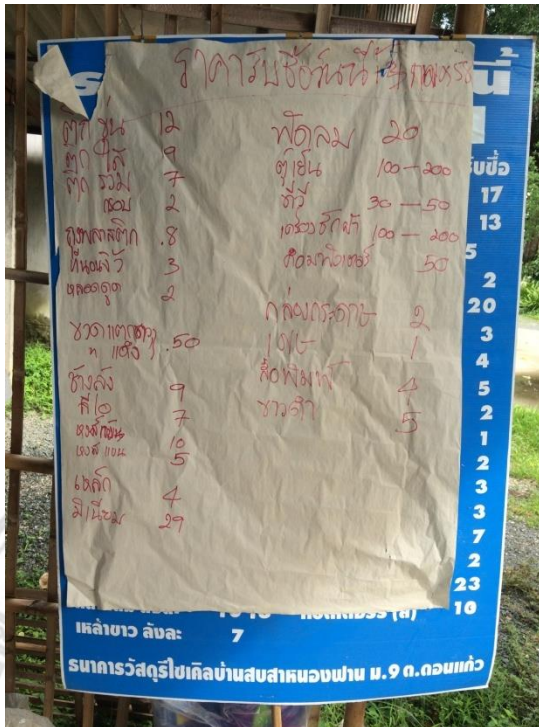 ราคารับซื้อวันนี้
ติกขุ่น 12
ติกใส 9
ติกรวม 7
กรอบ 2
ถุงพลาสติก .8
ที่นอนจิ๋ว 3
หลอดดูด 2
ขวดแตกขาว
" แดง .50
ช้างลัง 9
ลีโอ 7
หงส์กลม 10
หงส์แบน 5
เหล็ก 4
มิเนียม 29
พัดลม 20
ตู้เย็น 100 – 200
ทีวี 30 – 50
เครื่องซักผ้า 100 – 200
คอมพิวเตอร์ 50
กล่องกระดาษ 2
เศษ 1
สื่อพิมพ์ 4
ขาวดำ 5
รับซื้อ
17
13
5
2
20
3
4
5
2
1
2
3
3
7
2
23
10
เหล้าขาว ลังละ 7
ธนาคารวัสดุรีไซเคิลบ้านสบสาหนองฟาน ม.9 ต.ดอนแก้ว